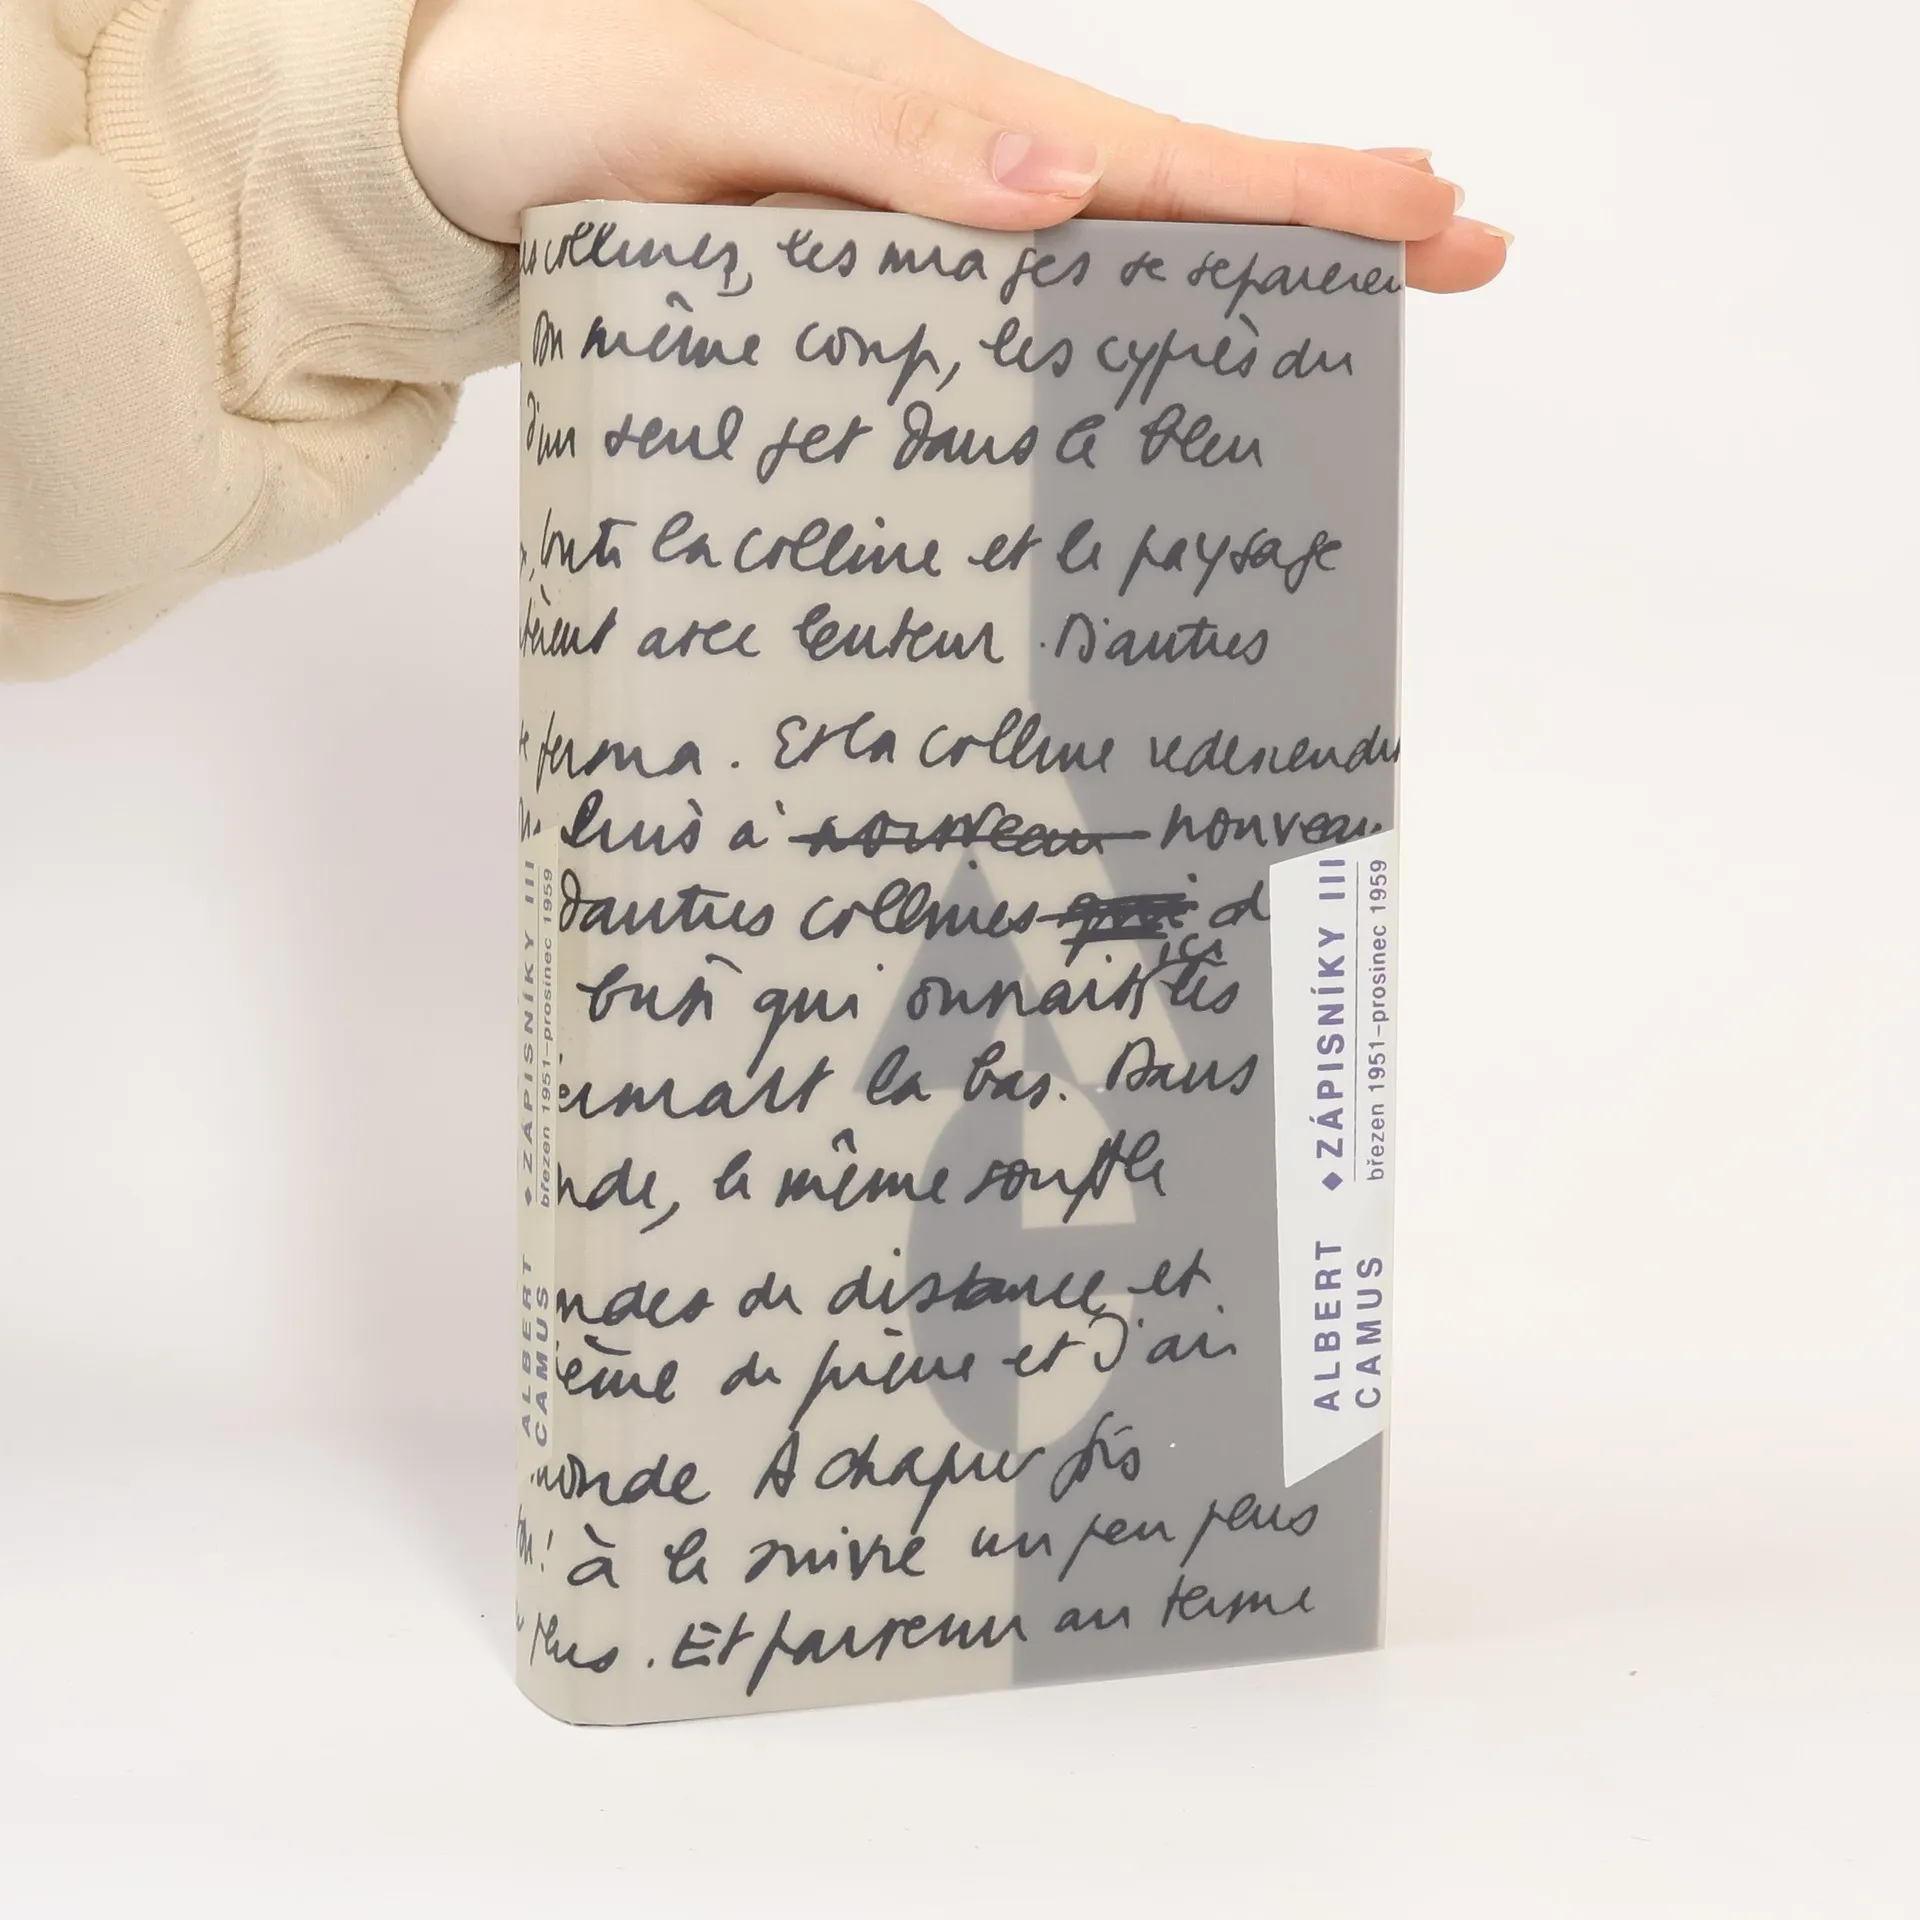 collines, les nuages se separeren
même coup, les cyprès du
d'un seul jet dans le bleu
toute la colline et le paysage
avec lenteur. D'autres
ferma. Et la colline redescendit
puis à nouveau nouveau
d'autres collines qui d
ici
qui les
la bas. Dans
nde, le même souffle
ndes de distance et
de pierre et J'ai
monde A chaque fois
! à le suivre un peu plus
plus. Et parvenu au terme
ALBERT CAMUS ◆ ZÁPISNÍKY III
březen 1951–prosinec 1959
ALBERT CAMUS ◆ ZÁPISNÍKY III
březen 1951–prosinec 1959